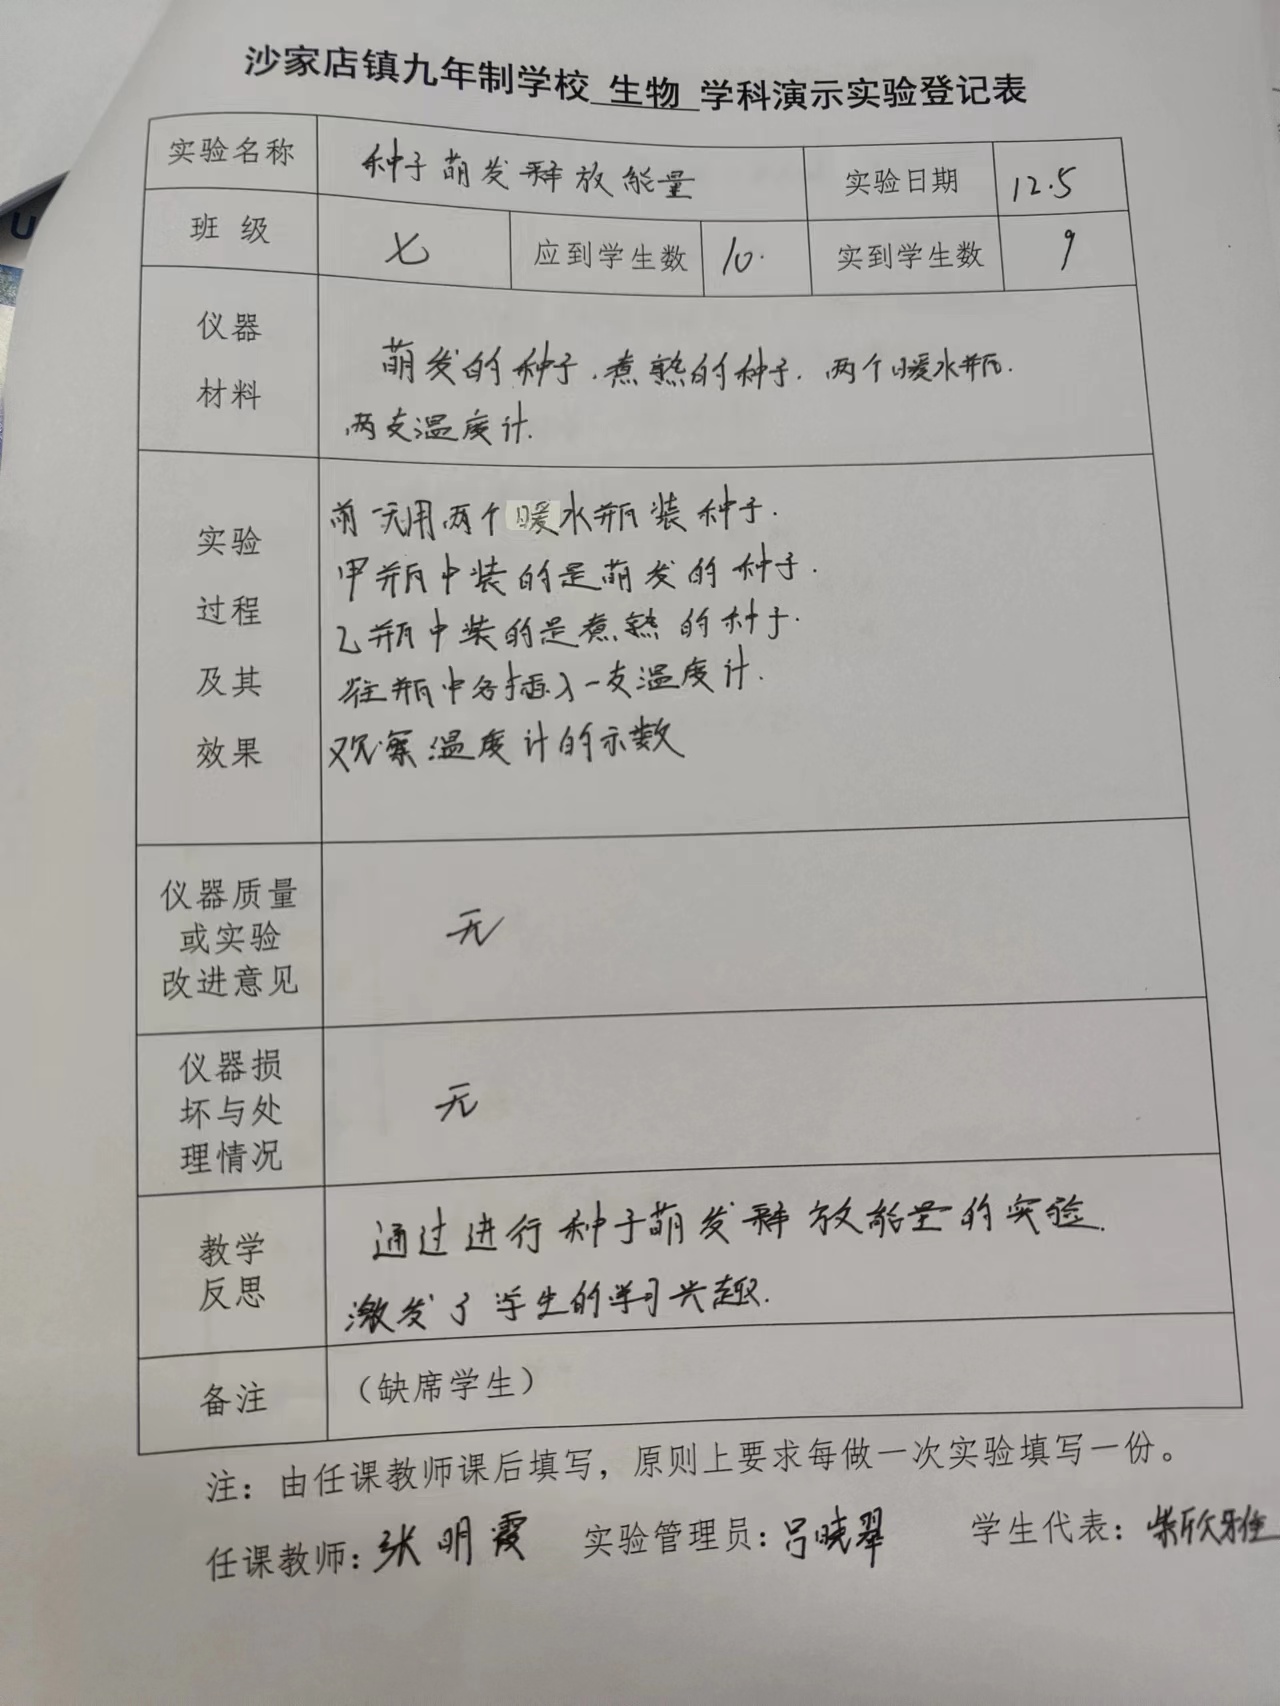 沙家店镇九年制学校 生物 学科演示实验登记表
实验名称 种子萌发释放能量 实验日期 12.5
班 级 七 应到学生数 10. 实到学生数 9
仪器
材料
萌发的种子.煮熟的种子.两个暖水瓶.
两支温度计.
实验
过程
及其
效果
前一天用两个暖水瓶装种子.
甲瓶中装的是萌发的种子.
乙瓶中装的是煮熟的种子.
往瓶中各插入一支温度计.
观察温度计的示数
仪器质量
或实验
改进意见
无
仪器损
坏与处
理情况
无
教学
反思
通过进行种子萌发释放能量的实验.
激发了学生的学习兴趣.
备注 （缺席学生）
注：由任课教师课后填写，原则上要求每做一次实验填写一份。
任课教师：张明霞 实验管理员：吕晓翠 学生代表：柴欣雅
U